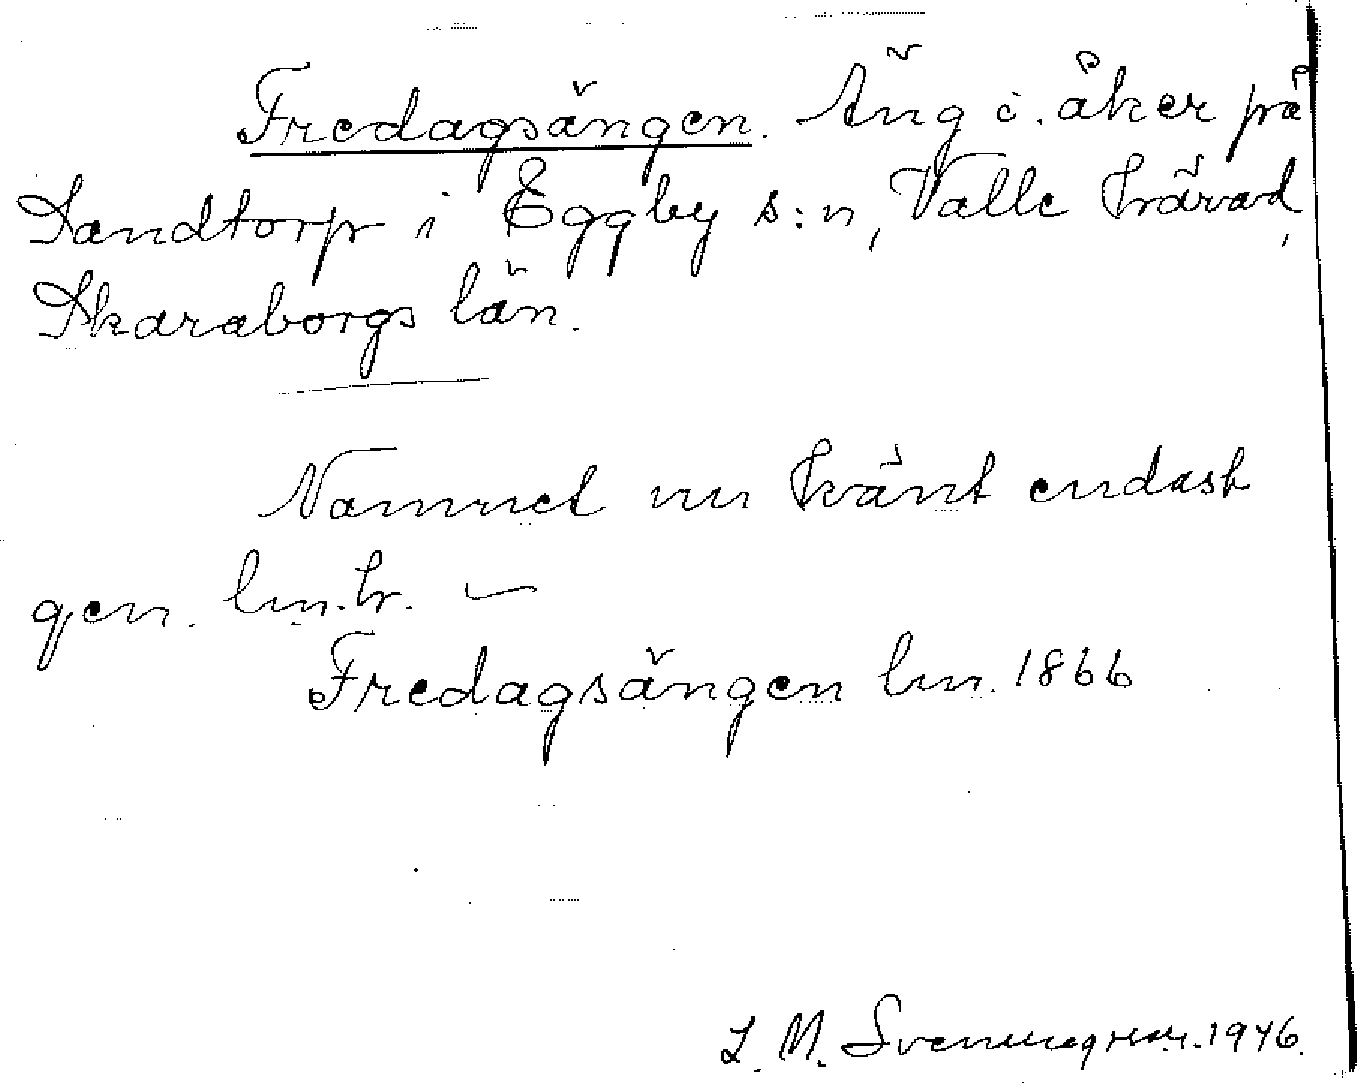 Fredagsängen. Äng i. åker på
Sandtorp i Eggby s:n, Valle härad,
Skaraborgs län.
Namnet nu känt endast
gen. lm.h. —
Fredagsängen lm. 1866
L. M. Svenungsson. 1946.